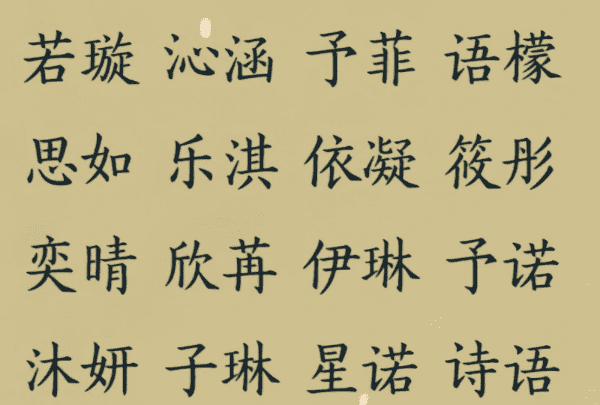 若璇 沁涵 予菲 语檬
思如 乐淇 依凝 筱彤
奕晴 欣苒 伊琳 予诺
沐妍 子琳 星诺 诗语